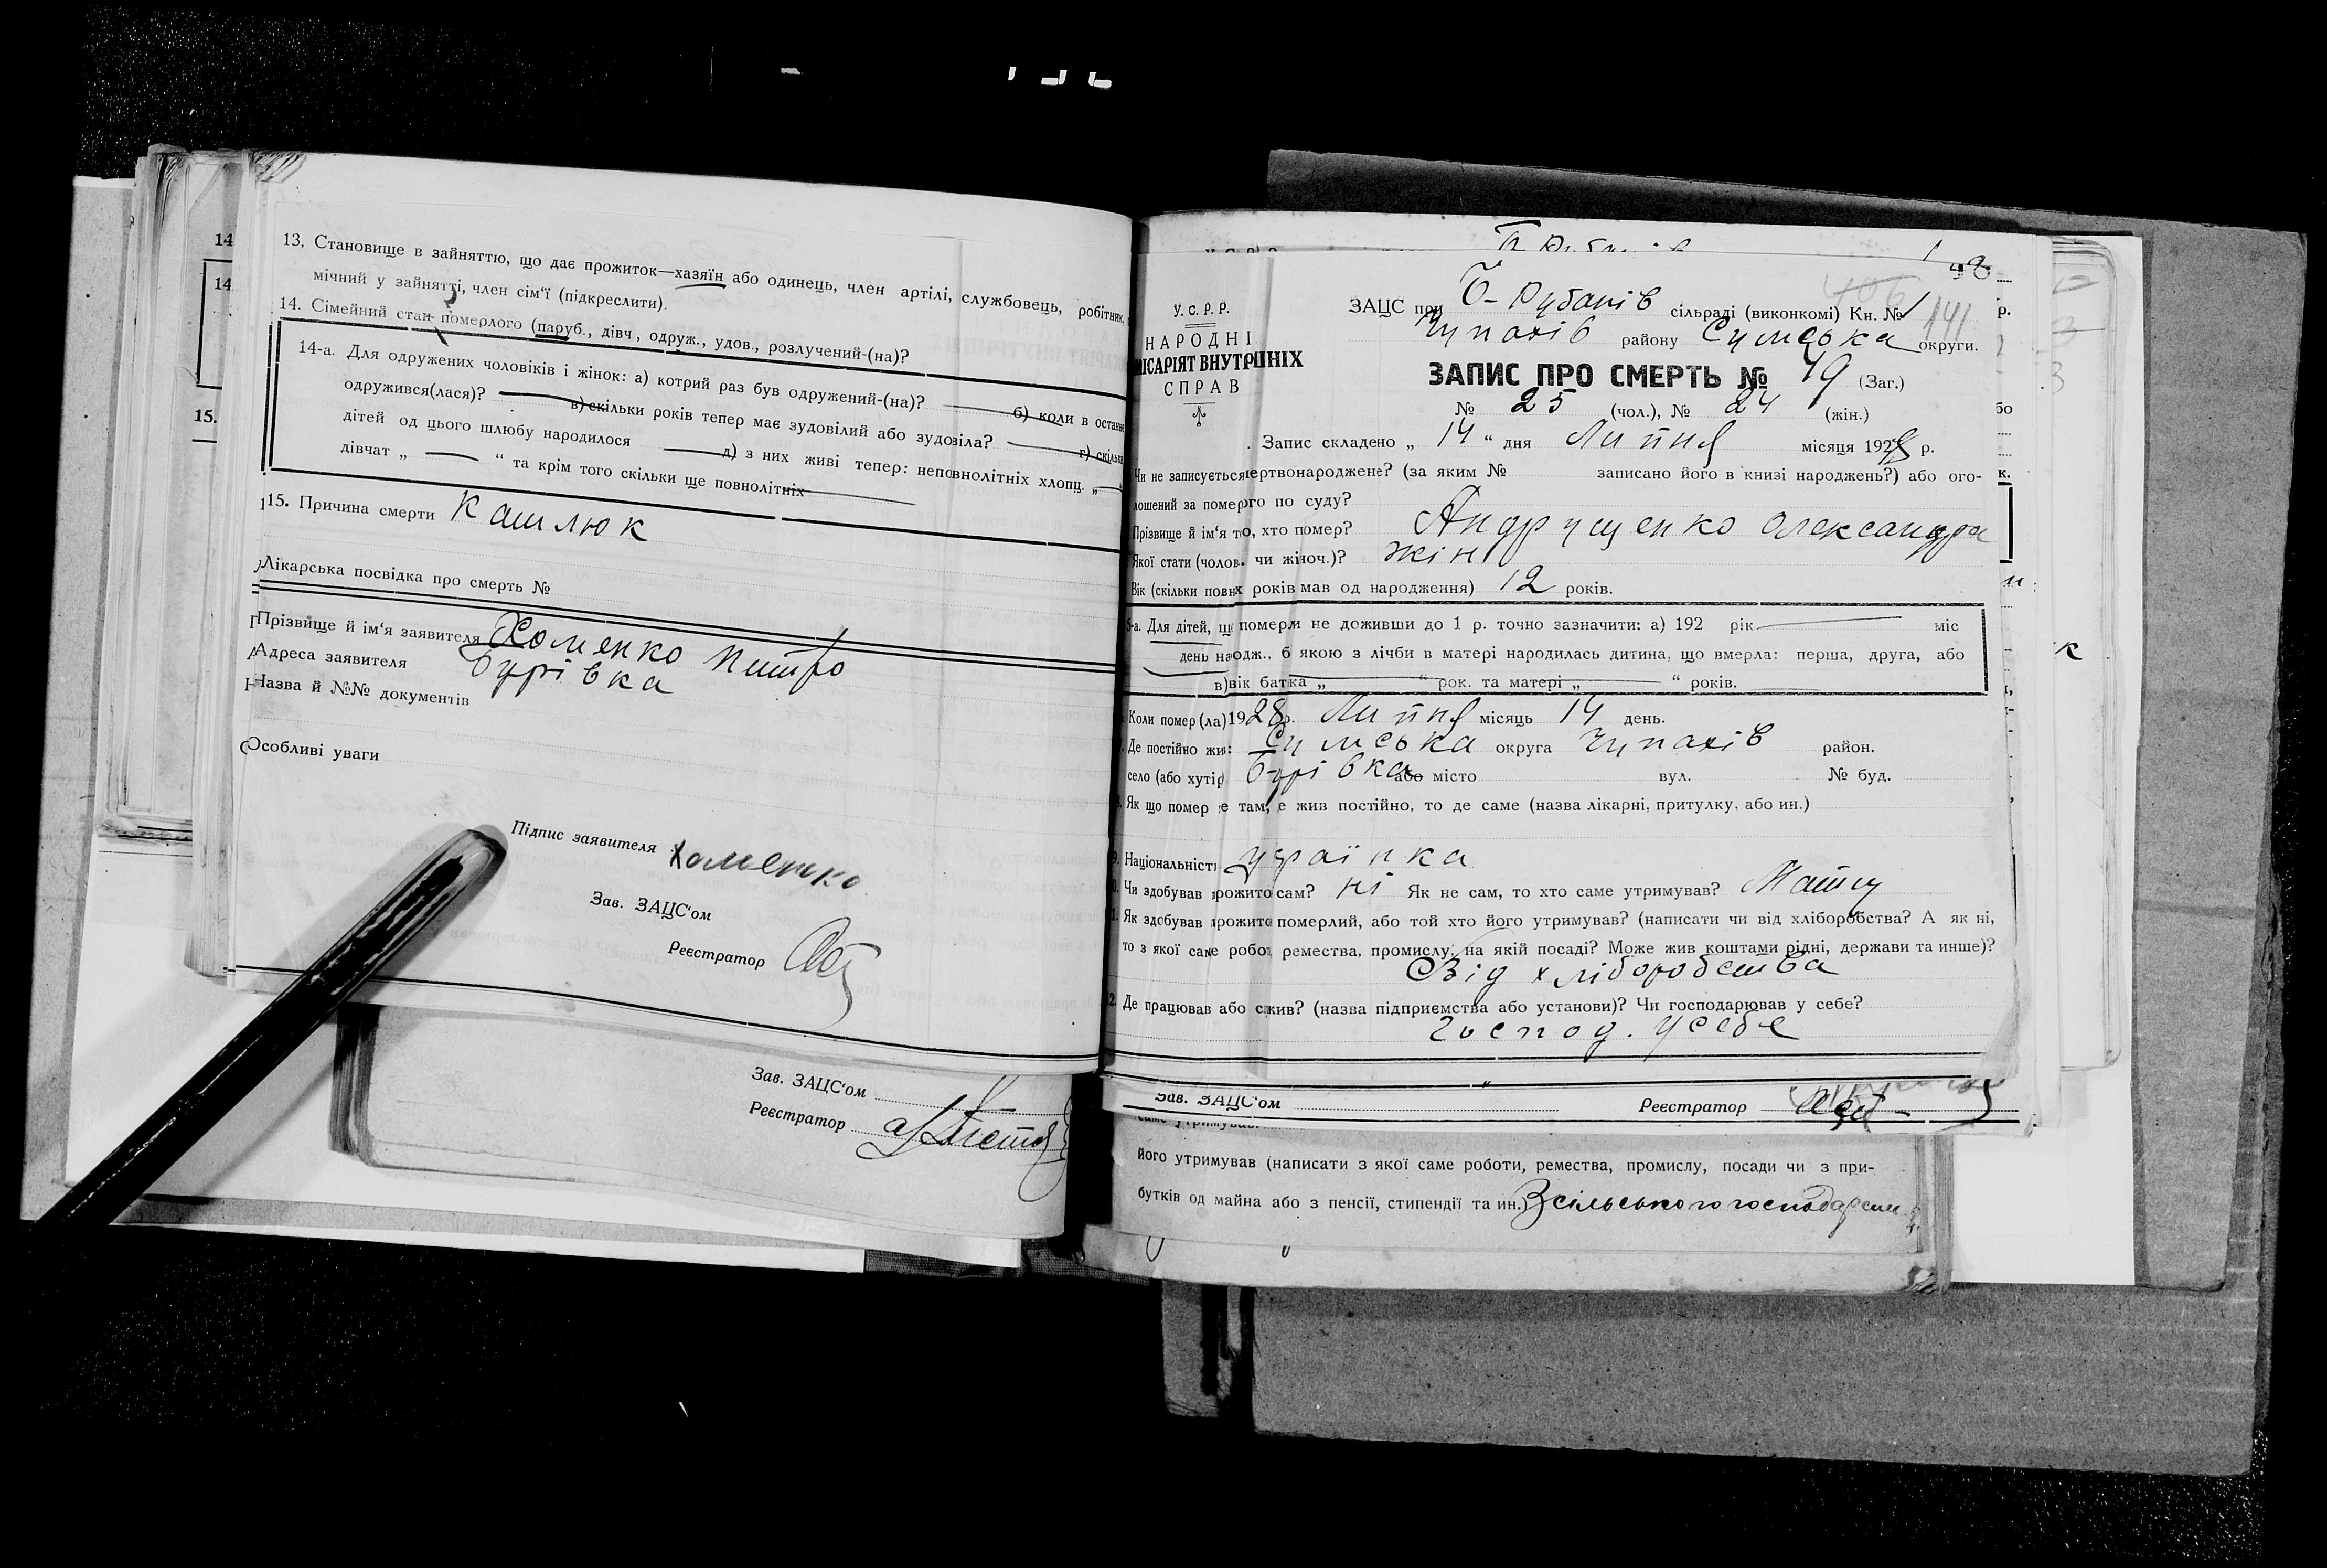 14
14
15.
13. Становище в зайняттю, що дає прожиток—хазяїн або одинець, член артілі, службовець, робітник,
мічний у зайнятті, член сім'ї (підкреслити).
14. Сімейний стан померлого (паруб., дівч., одруж., удов., розлучений-(на)?
14-а. Для одружених чоловіків і жінок: а) котрий раз був одружений-(на)? б) коли в останнє
одружився(лася)? в) скільки років тепер має зудовілий або зудовіла? г) скільки
дітей од цього шлюбу народилося д) з них живі тепер: неповнолітніх хлопц. „
дівчат „ “ та крім того скільки ще повнолітніх
15. Причина смерти Кашлюк
Лікарська посвідка про смерть №
Прізвище й ім'я заявителя Хоменко Питро
Адреса заявителя Бурівка
Назва й №№ документів
Особливі уваги
Підпис заявителя Хоменко.
Зав. ЗАЦС'ом
Реєстратор
Зав. ЗАЦС'ом
Реєстратор
У. С. Р. Р.
НАРОДНІ
МІСАРІЯТ ВНУТРІШНІХ
СПРАВ
ЗАЦС при Б-Рубанів сільраді (виконкомі) Кн. № 1
406 141
Чупахів району Сумська округи.
ЗАПИС ПРО СМЕРТЬ № 49 (Заг.)
№ 25 (чол.), № 24 (жін.)
Запис складено „ 14 “ дня Липня місяця 1928 р.
Чи не записується мертвонароджене? (за яким № записано його в книзі народжень?) або ого-
лошений за померго по суду?
Прізвище й ім'я то, хто помер? Андрущенко Олександра
Якої стати (чолов. чи жіноч.)? жін
Вік (скільки повних років мав од народження) 12 років.
5-а. Для дітей, що померли не доживши до 1 р. точно зазначити: а) 192 рік міс
день народж., б якою з лічби в матері народилась дитина, що вмерла: перша, друга, або
в) вік батка „ “ рок. та матері „ “ років.
Коли помер (ла) 1928 р. Липня місяць 14 день.
Де постійно жив: Сумська округа Чупахів район.
село (або хутір) Бурівка або місто вул. № буд.
Як що помер не там, де жив постійно, то де саме (назва лікарні, притулку, або ин.)
9. Національність українка
Чи здобував прожиток сам? ні Як не сам, то хто саме утримував? Матиу
Як здобував прожиток померлий, або той хто його утримував? (написати чи від хліборобства? А як ні,
то з якої саме роботи, ремества, промислу, на якій посаді? Може жив коштами рідні, держави та инше)?
Від хліборобства
Де працював або служив? (назва підприємства або установи)? Чи господарював у себе?
господ. усебе
Зав. ЗАЦС'ом Реєстратор
його утримував (написати з якої саме роботи, ремества, промислу, посади чи з при-
бутків од майна або з пенсії, стипендії та ин.) Зсільського господарств